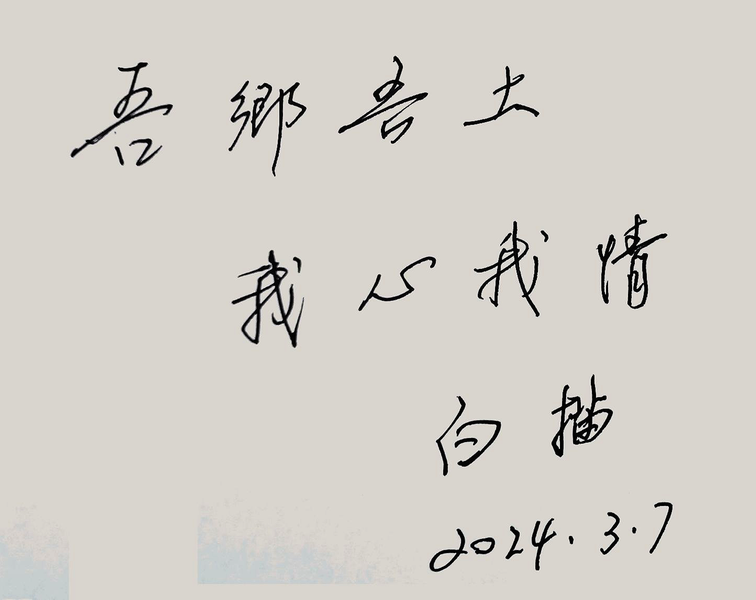 吾鄉吾土
我心我情
白描
2024.3.7